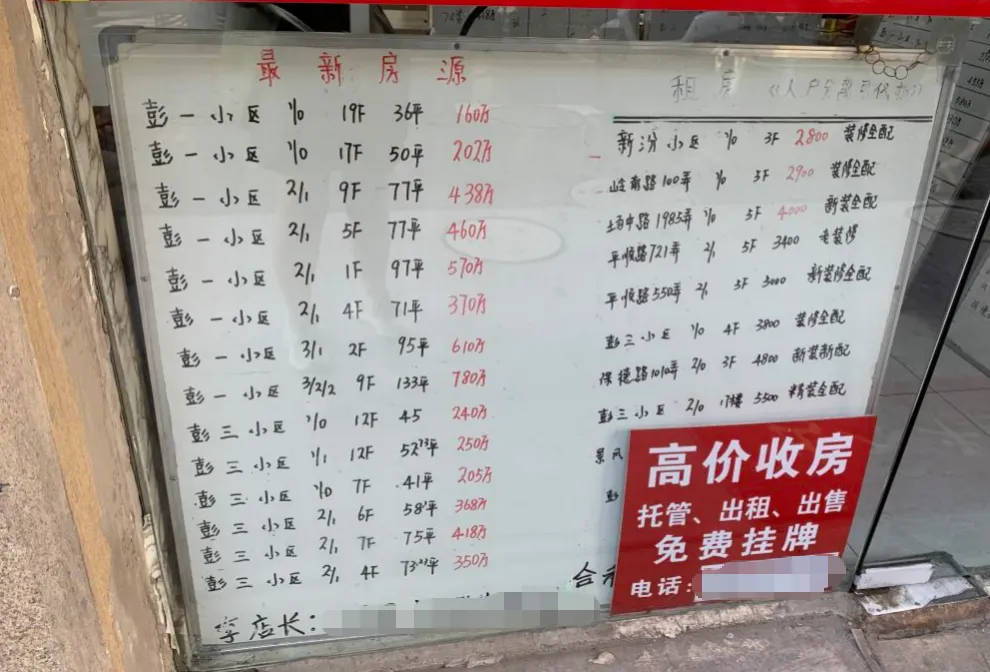 最新房源
彭一小区 1/0 19F 36平 160万
彭一小区 1/0 17F 50平 202万
彭一小区 2/1 9F 77平 438万
彭一小区 2/1 5F 77平 460万
彭一小区 2/1 1F 97平 570万
彭一小区 2/1 4F 71平 370万
彭一小区 3/1 2F 95平 610万
彭一小区 3/2/2 9F 133平 780万
彭三小区 1/0 12F 45 240万
彭三小区 1/1 12F 52.73平 250万
彭三小区 1/0 7F 41平 205万
彭三小区 2/1 6F 58平 368万
彭三小区 2/1 7F 75平 418万
彭三小区 2/1 4F 平 350万
李店长:
租房《人户分离可代办》
新汾小区 1/0 3F 2800 装修全配
岭南路100弄 1/0 3F 2900 装修全配
中路1985弄 1/0 3F 4000 新装全配
平顺路721弄 2/1 5F 3400 老装修
平顺路550弄 2/1 3F 3000 新装修全配
彭三小区 1/0 4F 3800 装修全配
保德路1010弄 2/0 3F 4800 新装新配
彭三小区 2/0 17楼 5500 精装全配
景风
彭
合
高价收房
托管、出租、出售
免费挂牌
电话: